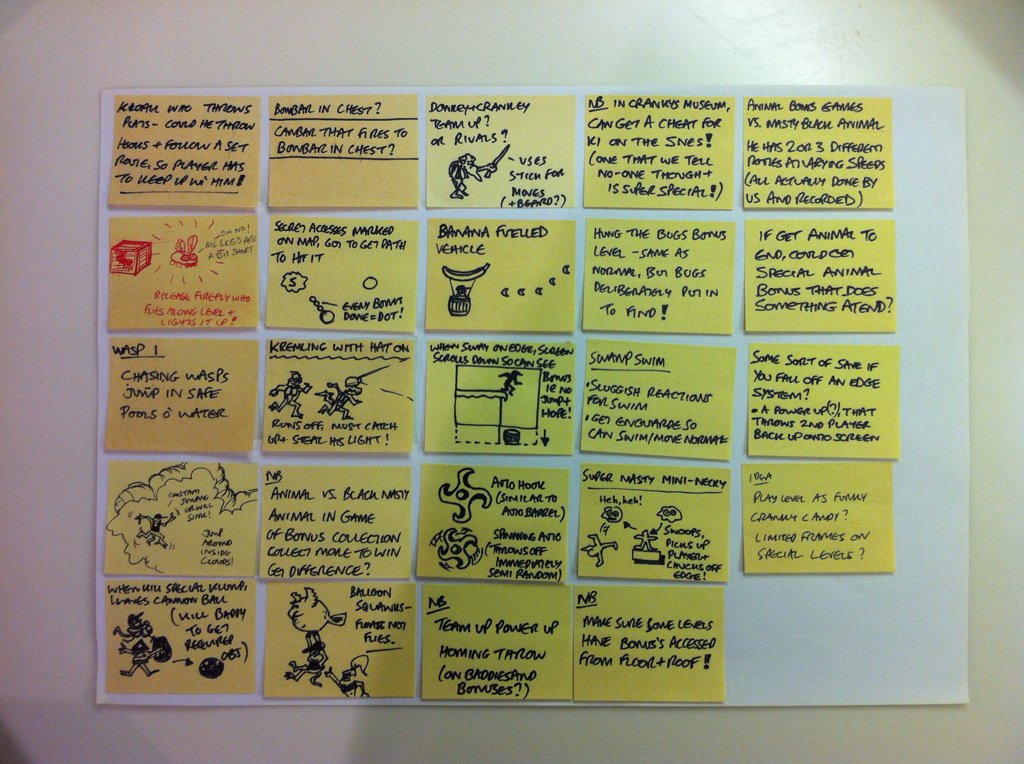 KLOAK WHO THROWS
PLATS - COULD HE THROW
ITEMS + FOLLOW A SET
ROUTE, SO PLAYER HAS
TO KEEP UP W/ HIM!
BOMBAR IN CHEST?
CANBAR THAT FIRES TO
BOMBAR IN CHEST?
DONKEY + CRANKEY
TEAM UP?
OR RIVALS?
- USES
STICK FOR
MOVES
(+ BEARD?)
NB IN CRANKYS MUSEUM,
CAN GET A CHEAT FOR
KI ON THE SNES!
(ONE THAT WE TELL
NO-ONE THOUGH +
IS SUPER SPECIAL!)
ANIMAL BONUS GAMES
VS. NASTY BLACK ANIMAL
HE HAS 2 OR 3 DIFFERENT
ROUTES AT VARYING SPEEDS
(ALL ACTUALLY DONE BY
US AND RECORDED)
OH NO!
MY LEGS ARE
A BIT SHORT
RELEASE FIREFLY WHO
FLIES ALONG LEVEL +
LIGHTS IT UP!
SECRET ACCESSES MARKED
ON MAP, GO TO GET PATH
TO HIT IT
S
EVERY BONUS
DONE = DOT!
BANANA FUELLED
VEHICLE
HUNT THE BUGS BONUS
LEVEL - SAME AS
NORMAL, BUT BUGS
DELIBERATELY PUT IN
TO FIND!
IF GET ANIMAL TO
END, COULD GET
SPECIAL ANIMAL
BONUS THAT DOES
SOMETHING AT END?
WASP 1
CHASING WASPS
JUMP IN SAFE
POOLS O' WATER
KREMLING WITH HAT ON
RUNS OFF, MUST CATCH
UP + STEAL HIS LIGHT!
WHEN SWAY ON EDGE, SCREEN
SCROLLS DOWN SO CAN SEE
BONUS
IE NO
JUMP +
HOPE!
SWAMP SWIM
• SLUGGISH REACTIONS
FOR SWIM
• GET ENGUARDE SO
CAN SWIM/MOVE NORMAL
SOME SORT OF SAVE IF
YOU FALL OFF AN EDGE
SYSTEM?
• A POWER UP(?), THAT
THROWS 2ND PLAYER
BACK UP ONTO SCREEN
CONSTANT
JUMPING
OR WILL
SINK!
JUMP
AROUND
INSIDE
CLOUDS!
NB
ANIMAL VS. BLACK NASTY
ANIMAL IN GAME
OF BONUS COLLECTION
COLLECT MORE TO WIN
GET DIFFERENCE?
AUTO HOOK
(SIMILAR TO
AUTO BARREL)
SPINNING AUTO
(THROWS OFF
IMMEDIATELY
SEMI RANDOM)
SUPER NASTY MINI-NECKY
Heh, heh!
SWOOPS,
PICKS UP
PLAYER +
CHUCKS OFF
EDGE!
IDEA
PLAY LEVEL AS FUNKY
CRANKY CANDY?
LIMITED FRAMES ON
SPECIAL LEVELS?
WHEN KILL SPECIAL KLUMP,
LEAVES CANNON BALL
(KILL BADDY
TO GET
REQUIRED
OBJ)
BALLOON
SQUAWKS -
FLOATS NOT
FLIES.
NB
TEAM UP POWER UP
HOMING THROW
(ON BADDIES AND
BONUSES?)
NB
MAKE SURE SOME LEVELS
HAVE BONUS'S ACCESSED
FROM FLOOR + ROOF!